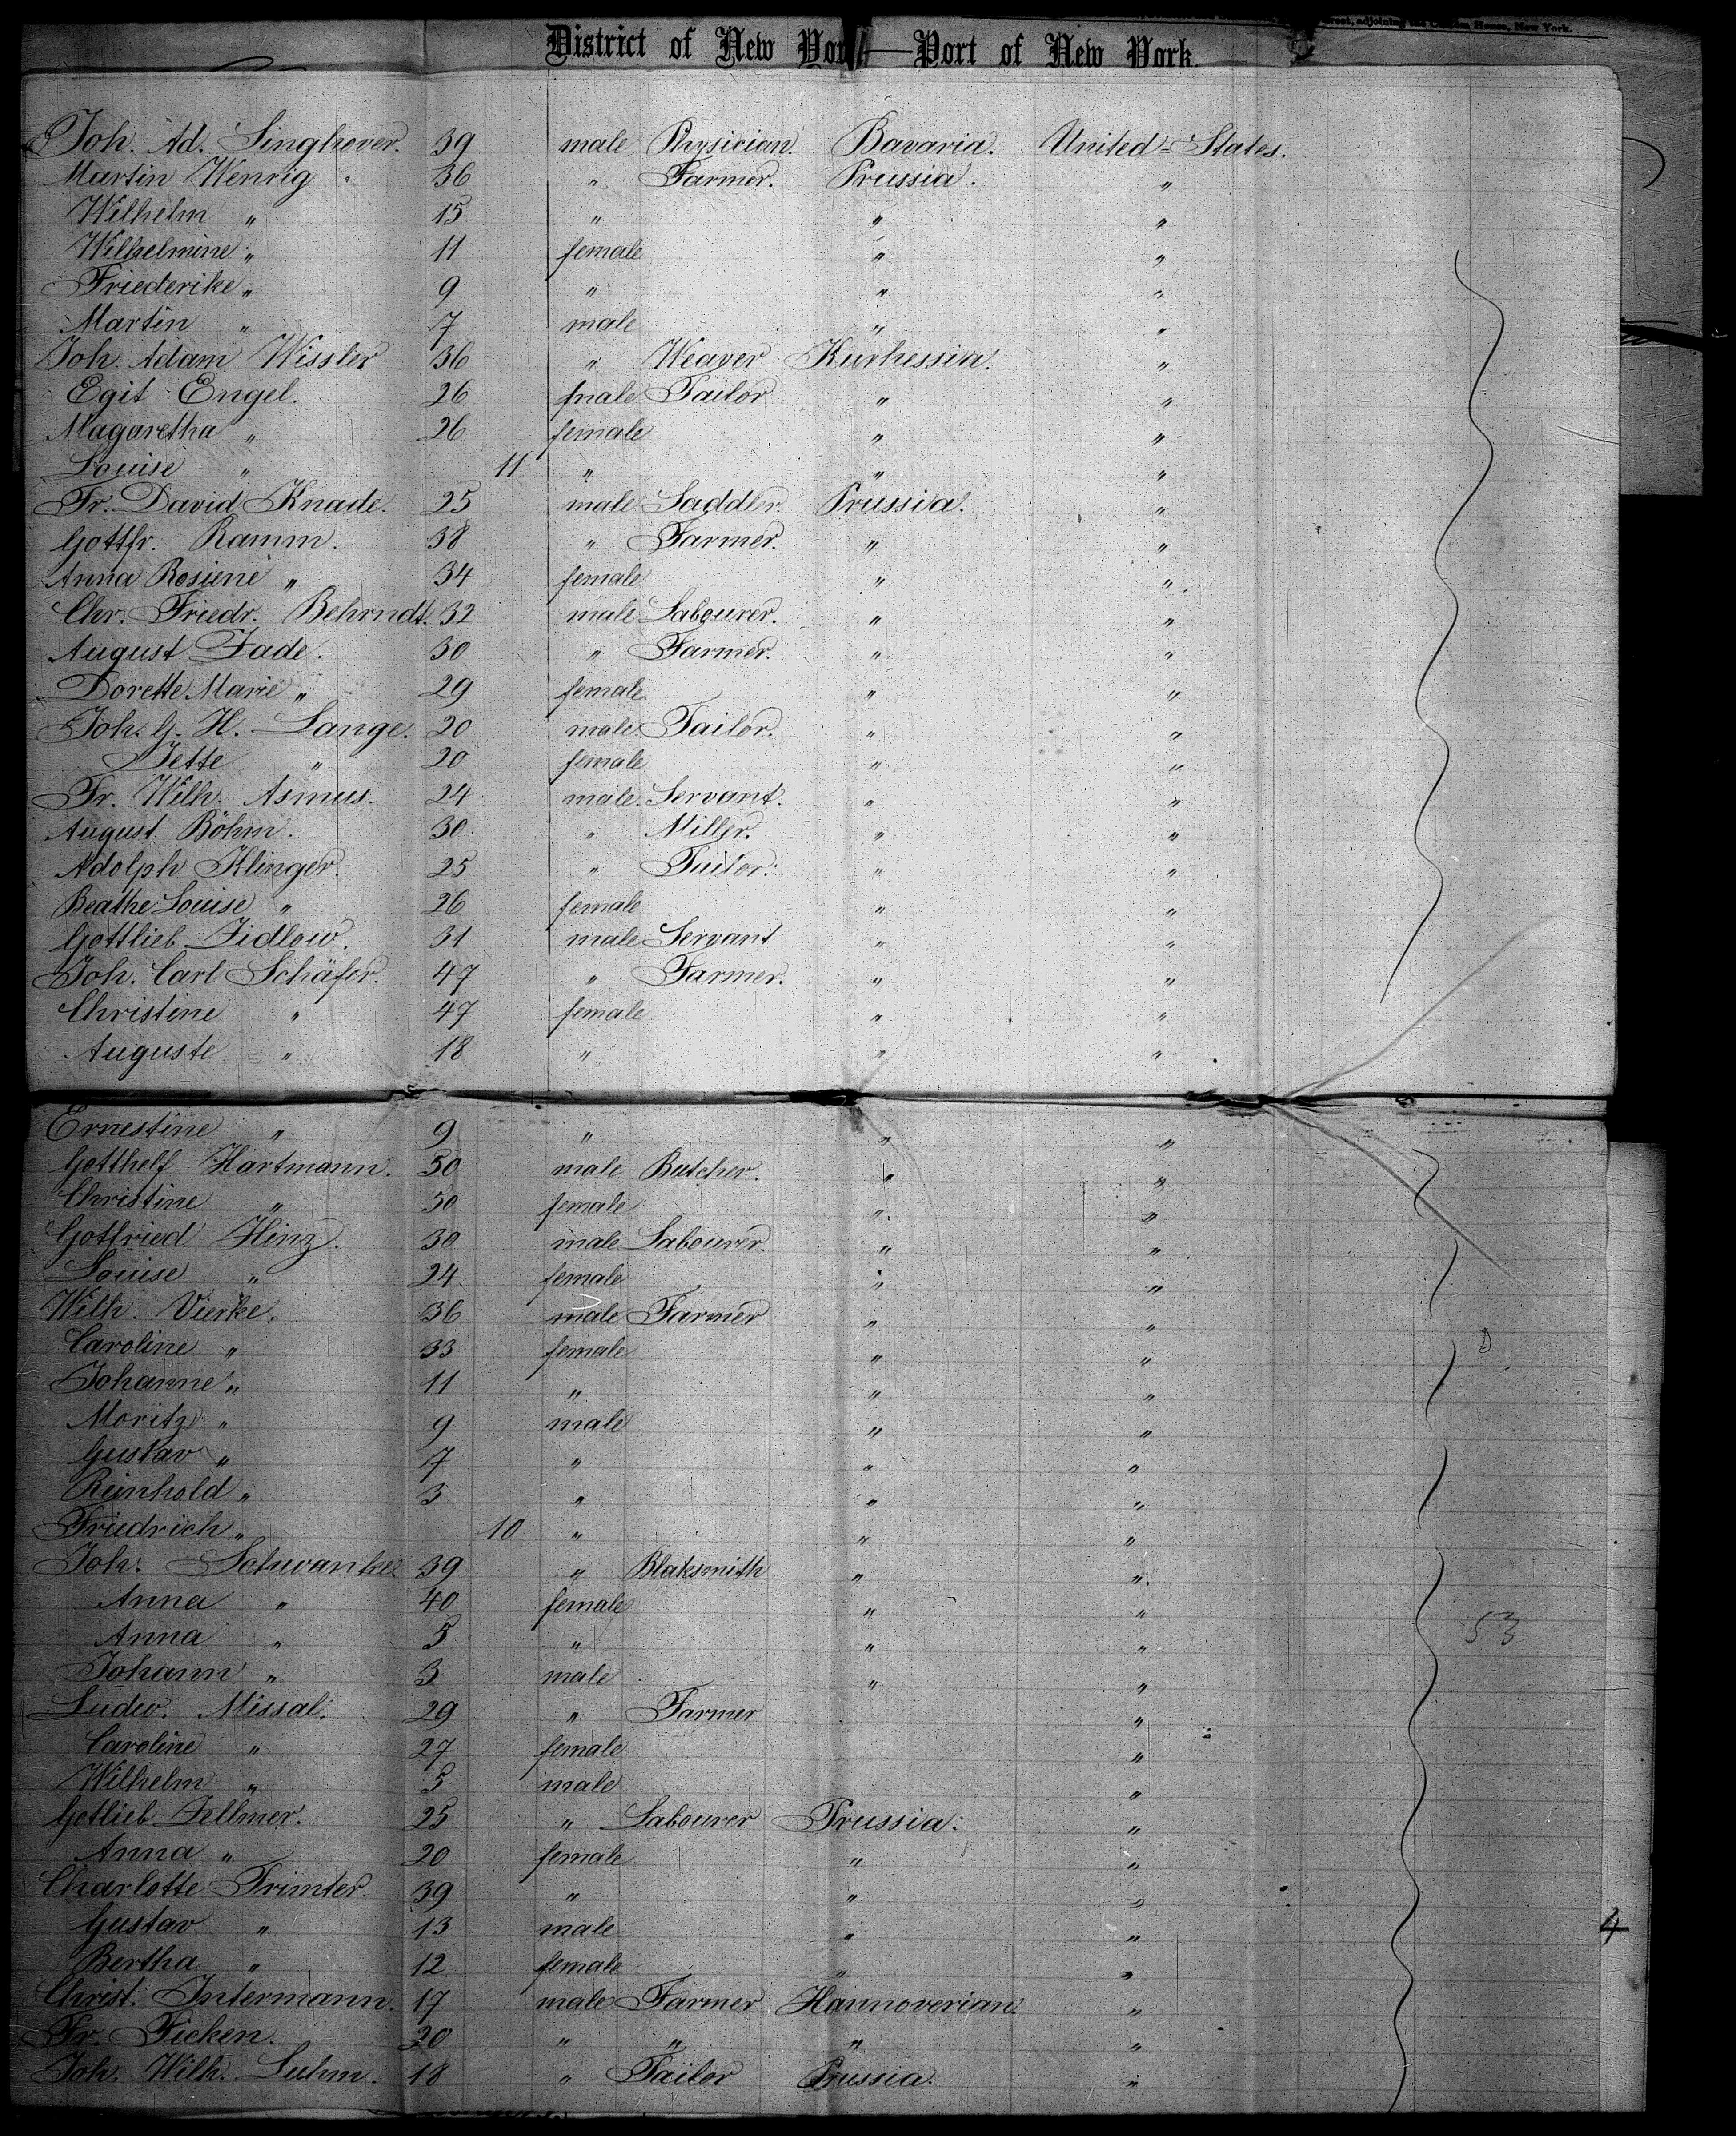 street, adjoining the Custom House, New York.
District of New York—Port of New York.
Joh. Ad. Singhover. 39 male Physician. Bavaria. United-States.
Martin Wenrig 36 " Farmer. Prussia. "
Wilhelm " 15 " " "
Wilhelmine " 11 female " "
Friederike " 9 " " "
Martin " 7 male " "
Joh. Adam Wissler 36 " Weaver Kurhessia. "
Egit Engel. 26 male Tailor " "
Magaretha " 26 female " "
Louise " 11 " " "
Fr. David Knade. 25 male Saddler. Prussia. "
Gottfr. Ramm. 38 " Farmer. " "
Anna Rosiene " 34 female " "
Chr. Friedr. Behrndt. 32 male Labourer. " "
August Zade. 30 " Farmer. " "
Dorette Marie " 29 female " "
Joh. G. H. Lange. 20 male Tailor. " "
Jette " 20 female " "
Fr. Wilh. Asmus. 24 male. Servant. " "
August Böhm. 30. " Miller. " "
Adolph Klinger. 25 " Tailor. " "
Beathe Louise " 26 female " "
Gottlieb Zidlow. 31 male Servant " "
Joh. Carl Schäfer. 47 " Farmer. " "
Christine " 47 female " "
Auguste " 18 " " "
Ernestine " 9 " " "
Gotthelf Hartmann. 50 male Butcher. " "
Christine " 50 female " "
Gotfried Hinz. 30 male Labourer. " "
Louise " 24 female " "
Wilh. Vierke. 36 male Farmer " "
Caroline " 33 female " "
Johanne " 11 " " "
Moritz " 9 male " "
Gustav " 7 " " "
Reinhold " 3 " " "
Friedrich " 10 " " "
Joh. Schwanke 39 " Blaksmith " "
Anna " 40 female " "
Anna " 5 " " "
53
Johann " 3 male " "
Ludw. Missal. 29 " Farmer "
Caroline " 27 female "
Wilhelm " 5 male "
Gotlieb Zellmer. 25 " Labourer Prussia. "
Anna " 20 female " "
Charlotte Primter. 39 " " "
Gustav " 13 male " "
4
Bertha " 12 female " "
Christ. Intermann. 17 male Farmer Hannoverian. "
Fr. Ficken. 20 " " " "
Joh. Wilh. Luhm. 18 " Tailor Prussia. "